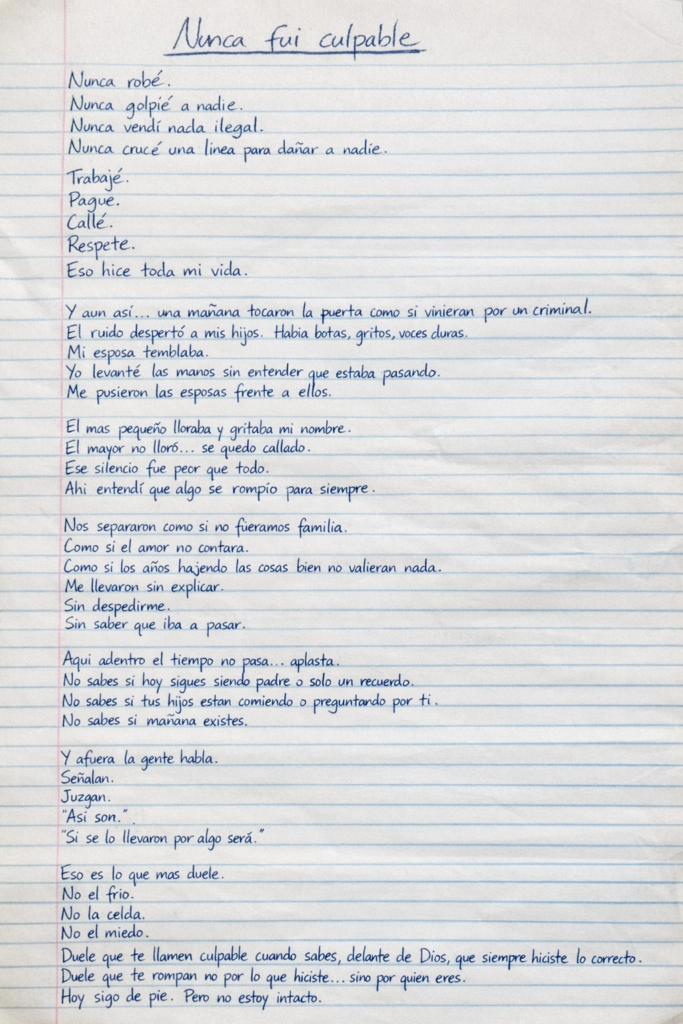 Nunca fui culpable
Nunca robé.
Nunca golpié a nadie.
Nunca vendí nada ilegal.
Nunca crucé una linea para dañar a nadie.
Trabajé.
Pague.
Callé.
Respete.
Eso hice toda mi vida.
Y aun así... una mañana tocaron la puerta como si vinieran por un criminal.
El ruido despertó a mis hijos. Habia botas, gritos, voces duras.
Mi esposa temblaba.
Yo levanté las manos sin entender que estaba pasando.
Me pusieron las esposas frente a ellos.
El mas pequeño lloraba y gritaba mi nombre.
El mayor no lloró... se quedo callado.
Ese silencio fue peor que todo.
Ahi entendí que algo se rompío para siempre.
Nos separaron como si no fueramos familia.
Como si el amor no contara.
Como si los años hajendo las cosas bien no valieran nada.
Me llevaron sin explicar.
Sin despedirme.
Sin saber que iba a pasar.
Aqui adentro el tiempo no pasa... aplasta.
No sabes si hoy sigues siendo padre o solo un recuerdo.
No sabes si tus hijos estan comiendo o preguntando por ti.
No sabes si mañana existes.
Y afuera la gente habla.
Señalan.
Juzgan.
"Asi son."
"Si se lo llevaron por algo será."
Eso es lo que mas duele.
No el frio.
No la celda.
No el miedo.
Duele que te llamen culpable cuando sabes, delante de Dios, que siempre hiciste lo correcto.
Duele que te rompan no por lo que hiciste... sino por quien eres.
Hoy sigo de pie. Pero no estoy intacto.